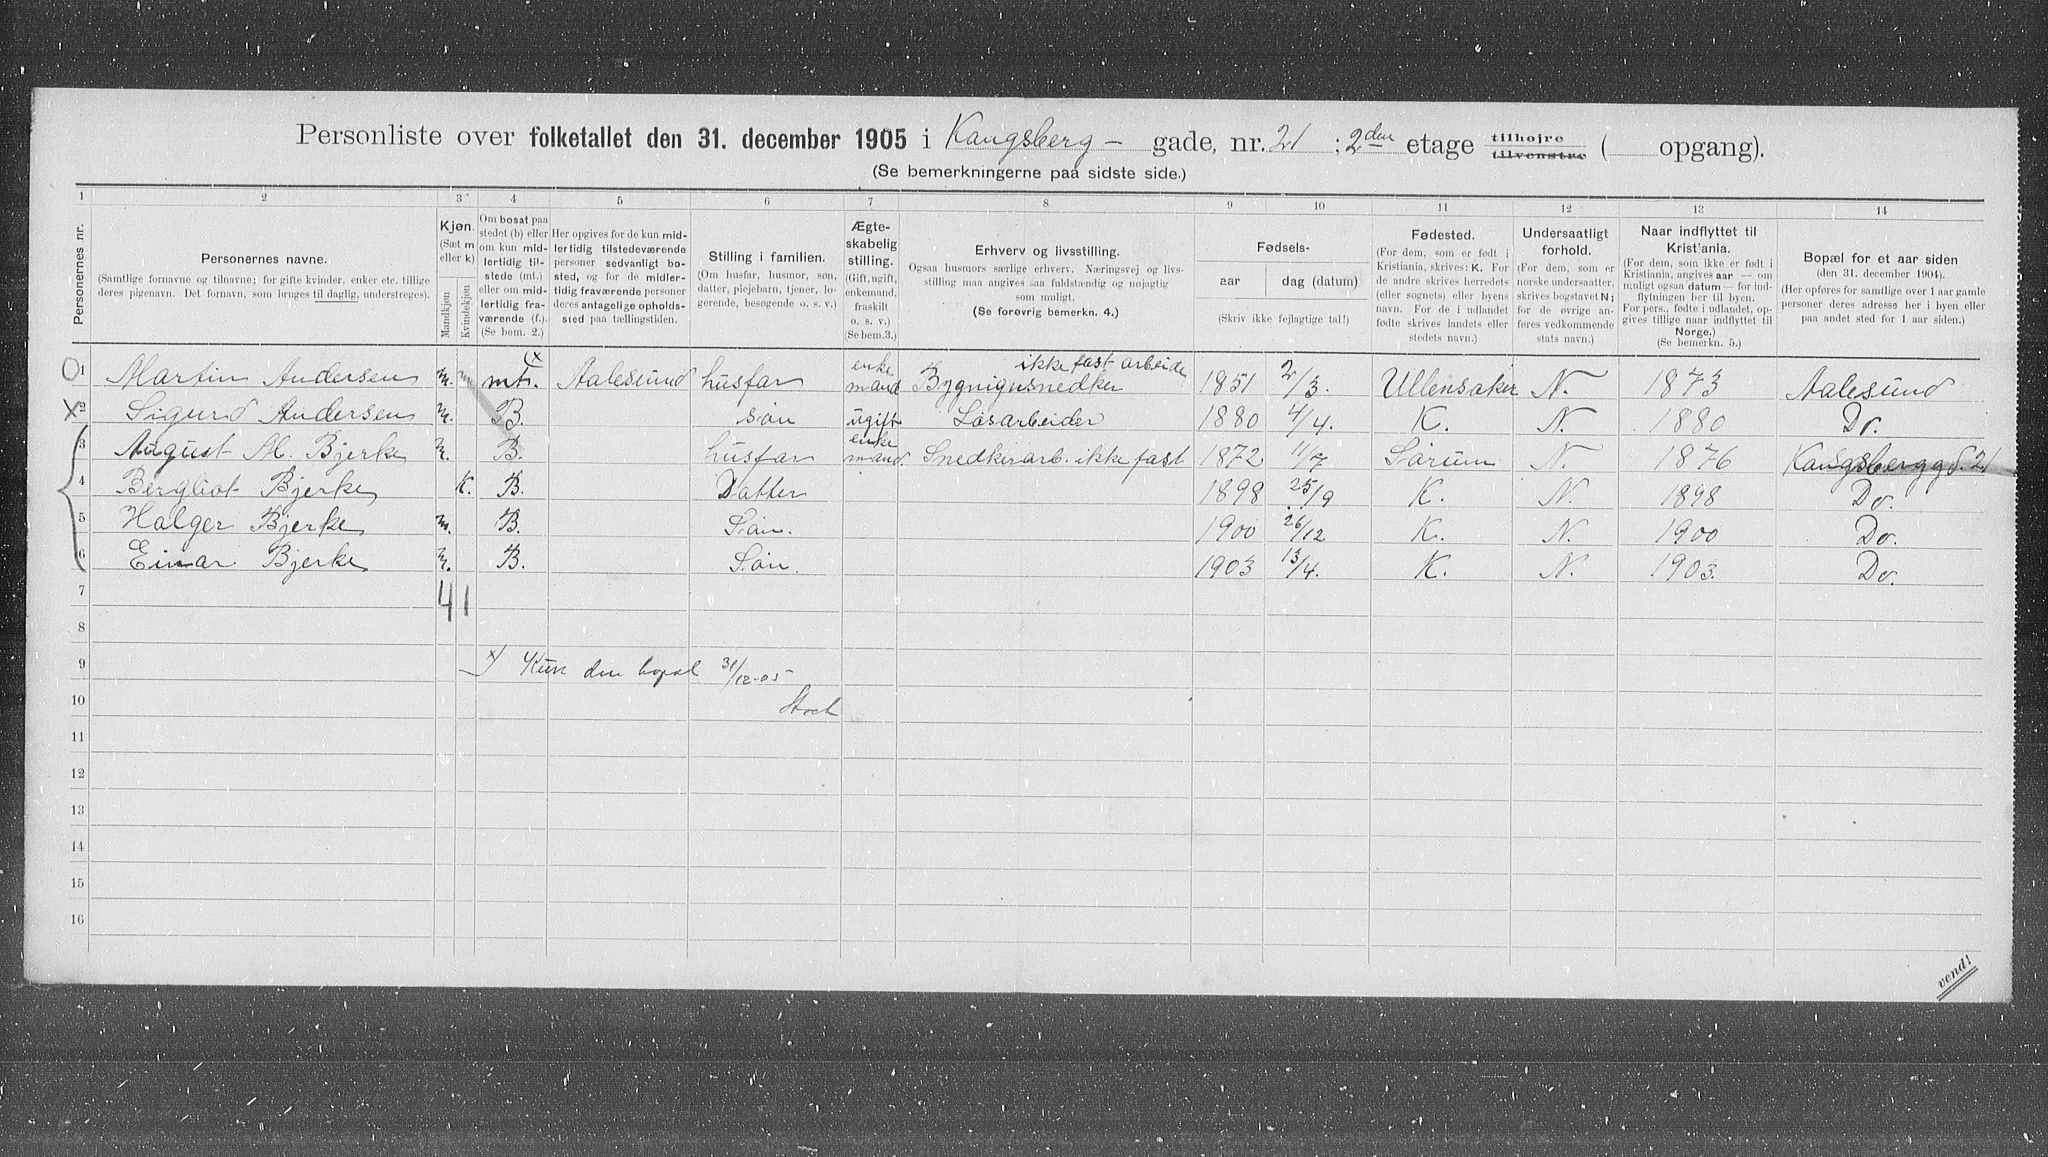 Personliste over folketallet den 31. december 1905 i Kangsberg - gade, nr. 21 ; 2den etage tilhøjre tilvenstre ( opgang).
(Se bemerkningerne paa sidste side.)
1 2 3 4 5 6 7 8 9 10 11 12 13 14
Personernes nr.
Personernes navne.
(Samtlige fornavne og tilnavne; for gifte kvinder, enker etc. tillige
deres pigenavn. Det fornavn, som bruges til daglig, understreges).
Kjøn.
(Sæt m
eller k)
Mandkjøn
Kvindekjøn
Om bosat paa
stedet (b) eller
om kun mid-
lertidig til-
stede (mt.)
eller om mid-
lertidig fra-
værende (f.).
(Se bem. 2.)
Her opgives for de kun mid-
lertidig tilstedeværende
personer sedvanlig bo-
sted, og for de midler-
tidig fraværende personer
deres antagelige opholds-
sted paa tællingstiden.
Stilling i familien.
(Om husfar, husmor, søn,
datter, plejebarn, tjener, lo-
gerende, besøgende o. s. v.)
Ægte-
skabelig
stilling.
(Gift, ugift,
enkemand,
fraskilt
o. s. v.)
(Se bem.3.)
Erhverv og livsstilling.
Ogsaa husmors særlige erhverv. Næringsvej og livs-
stilling maa angives saa fuldstændig og nøjagtig
som muligt.
(Se forøvrig bemerkn. 4.)
Fødsels-
aar
dag (datum)
(Skriv ikke fejlagtige tal!)
Fødested.
(For dem, som er født i
Kristiania, skrives: K. For
de andre skrives herredets
(eller sognets) eller byens
navn. For de i udlandet
fødte skrives landets eller
stedets navn.)
Undersaatligt
forhold.
(For dem, som er
norske undersaatter,
skrives bogstavet N;
for de øvrige an-
føres vedkommende
stats navn.)
Naar indflyttet til
Kristiania.
(For dem, som ikke er født i
Kristiania, angives aar — om
muligt ogsaa datum — for ind-
flytningen her til byen.
For pers., fødte i udlandet, op-
gives tillige naar indflyttet til
Norge.)
(Se bemerkn. 5.)
Bopæl for et aar siden
(den 31. december 1904).
(Her opføres for samtlige over 1 aar gamle
personer deres adresse her i byen eller
paa andet sted for 1 aar siden.)
1 Martin Andersen m. mt. x Aalesund husfar enkemand Bygnigsnedker ikke fast arbeide 1851 2/3. Ullensaker N. 1873 Aalesund
X 2 Sigurd Andersen m. B. søn ugift Løsarbeider 1880 4/4. K. N. 1880 Do.
3 August M. Bjerke m. B. husfar enkemand. Snedkerarb. ikke fast 1872 11/7 Sørum N. 1876 Kangsberggd. 21
4 Bergliot Bjerke K. B. Datter 1898 25/9 K. N. 1898 Do.
5 Holger Bjerke m. B. Søn. 1900 26/12 K. N. 1900 Do.
6 Einar Bjerke m. B. Søn. 1903 13/4. K. N. 1903. Do.
7 4 1
8
9 x) Kun den bopæl 31/12-05
10
11
12
13
14
15
16
vend!